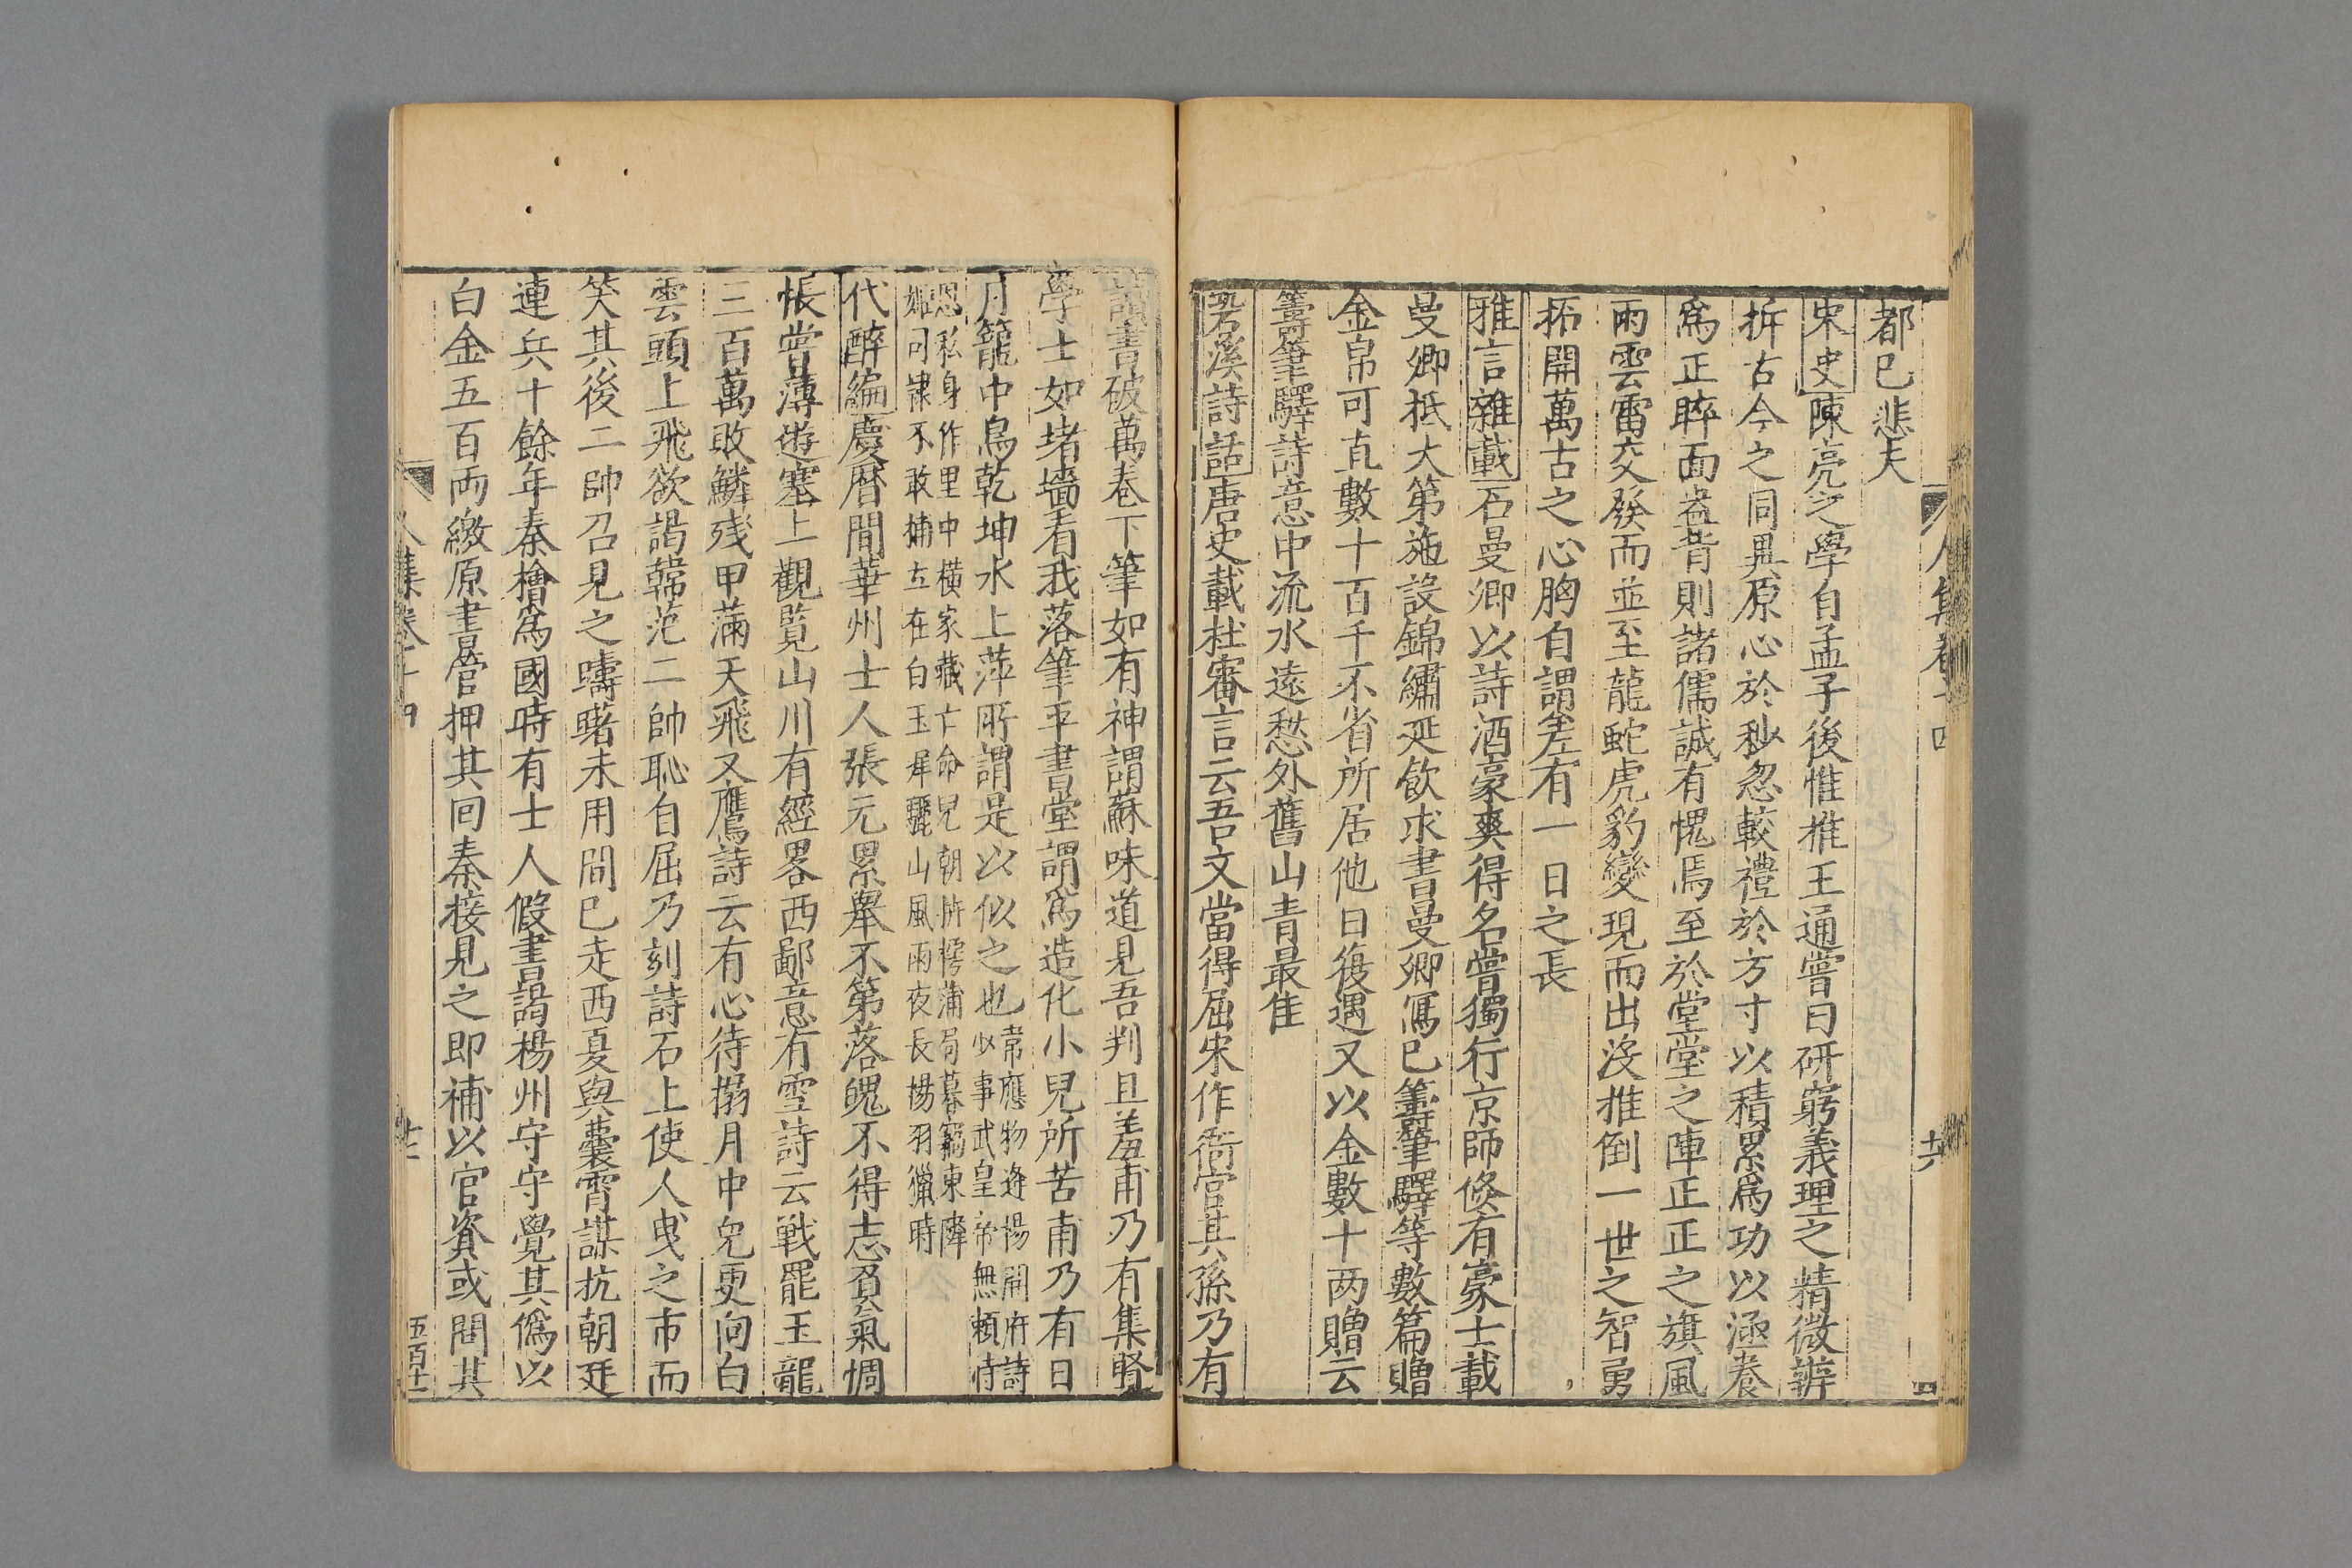 都已悲夫
宋史陳亮之學自孟子後惟推王通嘗曰研窮義理之精微辨
拆古今之同異原心於秒忽較禮於方寸以積累爲功以涵養
爲正睟面盎背則諸儒誠有愧焉至於堂堂之陣正正之旗風
雨雲雷交發而並至龍蛇虎豹變現而出沒推倒一世之智勇
拓開萬古之心胸自謂差有一日之長
雅言雜載石曼卿以詩酒豪爽得名嘗獨行京師倐有豪士載
曼卿抵大第施設錦繡延飲求書曼卿寫已籌筆驛等數篇贈
金帛可直數十百千不省所居他日復遇又以金數十两贈云
籌筆驛詩意中流水遠愁外舊山青最佳
䂬溪詩話唐史載杜審言云吾文當得屈宋作衙官其孫乃有
讀書破萬卷下筆如有神謂蘇味道見吾判且羞甫乃有集賢
學士如堵墻看我落筆平書堂謂爲造化小兒所苦甫乃有日
月籠中鳥乾坤水上萍所謂是以似之也
韋應物逢楊開府詩
少事武皇帝無頼恃
恩私身作里中横家藏亡命兒朝持樗蒲局暮竊東隣
姬司隷不敢捕立在白玉墀驪山風雨夜長楊羽獵時
代醉編慶曆間華州士人張元累舉不第落魄不得志負氣倜
悵嘗薄遊塞上觀覧山川有經畧西鄙意有雪詩云戦罷玉龍
三百萬敗鱗残甲滿天飛又鷹詩云有心待搦月中兔更向白
雲頭上飛欲謁韓范二帥耻自屈乃刻詩石上使人曳之市而
笑其後二帥召見之躊躇未用間已走西夏與曩霄謀抗朝廷
連兵十餘年秦檜爲國時有士人假書謁楊州守守覺其僞以
白金五百両繳原書管押其回秦接見之即補以官資或問其
人集卷十四
五百十一